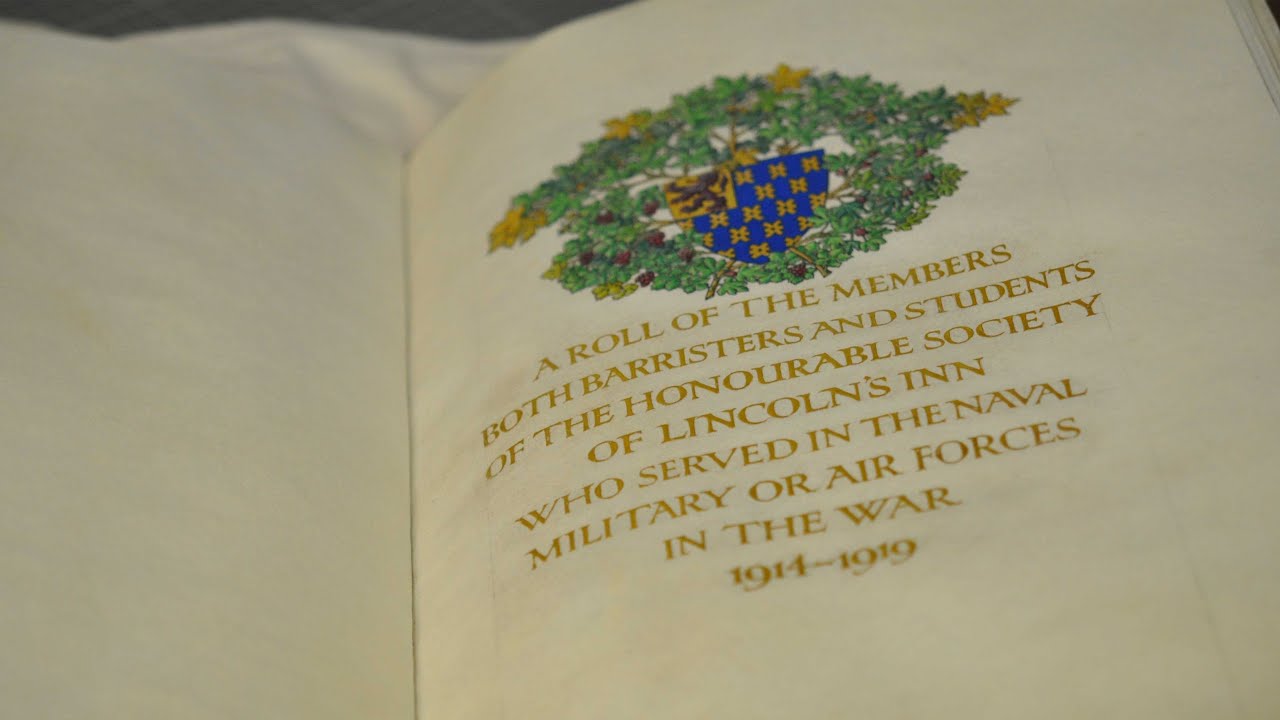 A ROLL OF THE MEMBERS
BOTH BARRISTERS AND STUDENTS
OF THE HONOURABLE SOCIETY
OF LINCOLN'S INN
WHO SERVED IN THE NAVAL
MILITARY OR AIR FORCES
IN THE WAR
1914-1919